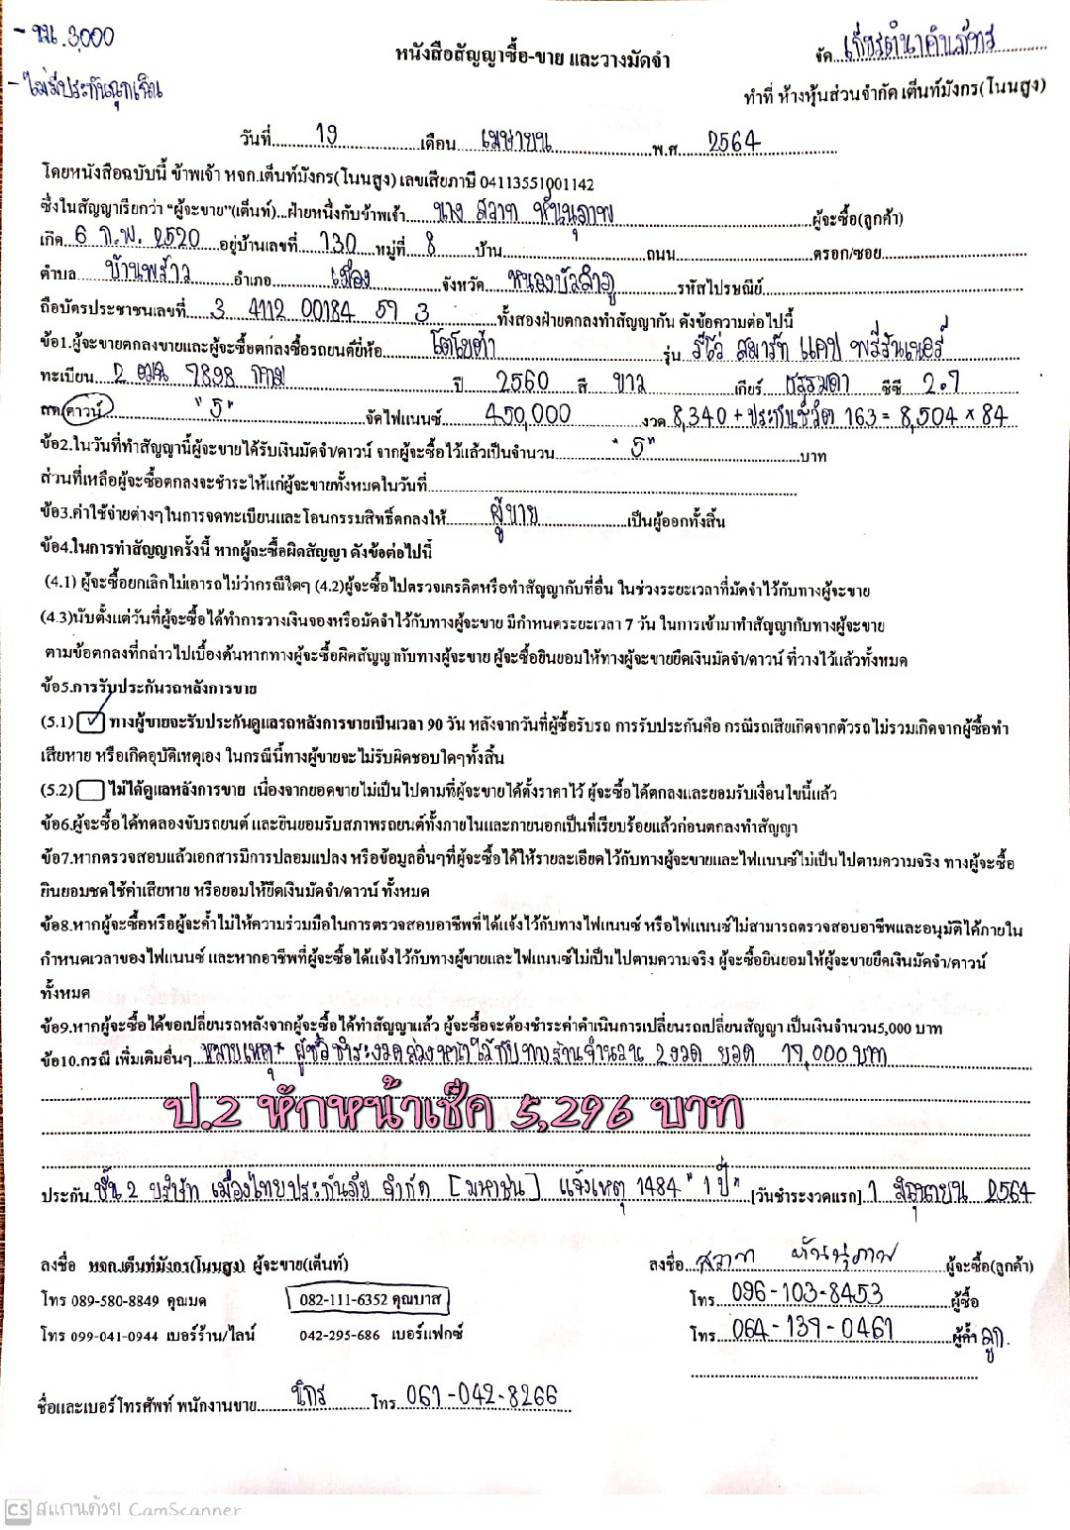 - ขน.3,000
จัด เกียรตินาคินภัทร
หนังสือสัญญาซื้อ-ขาย และวางมัดจำ
- ไม่มีประกันฉุกเฉิน
ทำที่ ห้างหุ้นส่วนจำกัด เต็นท์มังกร(โนนสูง)
วันที่ 19 เดือน เมษายน พ.ศ 2564
โดยหนังสือฉบับนี้ ข้าพเจ้า หจก.เต็นท์มังกร(โนนสูง) เลขเสียภาษี 04113551001142
ซึ่งในสัญญาเรียกว่า "ผู้จะขาย"(เต็นท์)...ฝ่ายหนึ่งกับข้าพเจ้า นาง สวาท หันนุภาพ ผู้จะซื้อ(ลูกค้า)
เกิด 6 ก.พ. 2520 อยู่บ้านเลขที่ 130 หมู่ที่ 8 บ้าน ถนน ตรอก/ซอย
ตำบล บ้านพร้าว อำเภอ เมือง จังหวัด หนองบัวลำภู รหัสไปรษณีย์
ถือบัตรประชาชนเลขที่ 3 4112 00184 59 3 ทั้งสองฝ่ายตกลงทำสัญญากัน ดังข้อความต่อไปนี้
ข้อ1.ผู้จะขายตกลงขายและผู้จะซื้อตกลงซื้อรถยนต์ยี่ห้อ โตโยต้า รุ่น รีโว่ สมาร์ท แคป พรีรันเนอร์
ทะเบียน 2 ฒฒ 9898 กทม ปี 2560 สี ขาว เกียร์ ธรรมดา ซีซี 2.7
สด/ดาวน์ "5" จัดไฟแนนซ์ 450,000 งวด 8,340 + ประกันชีวิต 163 = 8,504 × 84
ข้อ2.ในวันที่ทำสัญญานี้ผู้จะขายได้รับเงินมัดจำ/ดาวน์ จากผู้จะซื้อไว้แล้วเป็นจำนวน "5" บาท
ส่วนที่เหลือผู้จะซื้อตกลงจะชำระให้แก่ผู้จะขายทั้งหมดในวันที่
ข้อ3.ค่าใช้จ่ายต่างๆในการจดทะเบียนและโอนกรรมสิทธิ์ตกลงให้ ผู้ขาย เป็นผู้ออกทั้งสิ้น
ข้อ4.ในการทำสัญญาครั้งนี้ หากผู้จะซื้อผิดสัญญา ดังข้อต่อไปนี้
(4.1) ผู้จะซื้อยกเลิกไม่เอารถไม่ว่ากรณีใดๆ (4.2)ผู้จะซื้อไปตรวจเครดิตหรือทำสัญญากับที่อื่น ในช่วงระยะเวลาที่มัดจำไว้กับทางผู้จะขาย
(4.3)นับตั้งแต่วันที่ผู้จะซื้อได้ทำการวางเงินจองหรือมัดจำไว้กับทางผู้จะขาย มีกำหนดระยะเวลา 7 วัน ในการเข้ามาทำสัญญากับทางผู้จะขาย
ตามข้อตกลงที่กล่าวไปเบื้องต้นหากทางผู้จะซื้อผิดสัญญากับทางผู้จะขาย ผู้จะซื้อยินยอมให้ทางผู้จะขายยึดเงินมัดจำ/ดาวน์ ที่วางไว้แล้วทั้งหมด
ข้อ5.การรับประกันรถหลังการขาย
(5.1) ✓ ทางผู้ขายจะรับประกันดูแลรถหลังการขายเป็นเวลา 90 วัน หลังจากวันที่ผู้ซื้อรับรถ การรับประกันคือ กรณีรถเสียเกิดจากตัวรถ ไม่รวมเกิดจากผู้ซื้อทำ
เสียหาย หรือเกิดอุบัติเหตุเอง ในกรณีนี้ทางผู้ขายจะไม่รับผิดชอบใดๆทั้งสิ้น
(5.2) ไม่ได้ดูแลหลังการขาย เนื่องจากยอดขายไม่เป็นไปตามที่ผู้จะขายได้ตั้งราคาไว้ ผู้จะซื้อได้ตกลงและยอมรับเงื่อนไขนี้แล้ว
ข้อ6.ผู้จะซื้อได้ทดลองขับรถยนต์ และยินยอมรับสภาพรถยนต์ทั้งภายในและภายนอกเป็นที่เรียบร้อยแล้วก่อนตกลงทำสัญญา
ข้อ7.หากตรวจสอบแล้วเอกสารมีการปลอมแปลง หรือข้อมูลอื่นๆที่ผู้จะซื้อได้ให้รายละเอียดไว้กับทางผู้จะขายและไฟแนนซ์ไม่เป็นไปตามความจริง ทางผู้จะซื้อ
ยินยอมชดใช้ค่าเสียหาย หรือยอมให้ยึดเงินมัดจำ/ดาวน์ ทั้งหมด
ข้อ8.หากผู้จะซื้อหรือผู้จะค้ำไม่ให้ความร่วมมือในการตรวจสอบอาชีพที่ได้แจ้งไว้กับทางไฟแนนซ์ หรือไฟแนนซ์ไม่สามารถตรวจสอบอาชีพและอนุมัติได้ภายใน
กำหนดเวลาของไฟแนนซ์ และหากอาชีพที่ผู้จะซื้อได้แจ้งไว้กับทางผู้ขายและไฟแนนซ์ไม่เป็นไปตามความจริง ผู้จะซื้อยินยอมให้ผู้จะขายยึดเงินมัดจำ/ดาวน์
ทั้งหมด
ข้อ9.หากผู้จะซื้อได้ขอเปลี่ยนรถหลังจากผู้จะซื้อได้ทำสัญญาแล้ว ผู้จะซื้อจะต้องชำระค่าดำเนินการเปลี่ยนรถเปลี่ยนสัญญา เป็นเงินจำนวน5,000 บาท
ข้อ10.กรณี เพิ่มเติมอื่นๆ หมายเหตุ* ผู้ซื้อชำระงวดล่วงหน้าไว้กับทางร้านจำนวน 2 งวด ยอด 17,000 บาท
ป.2 หักหน้าเช็ค 5,296 บาท
ประกัน ชั้น 2 บริษัท เมืองไทยประกันภัย จำกัด [มหาชน] แจ้งเหตุ 1484 "1 ปี" [วันชำระงวดแรก] 1 มิถุนายน 2564
ลงชื่อ หจก.เต็นท์มังกร(โนนสูง) ผู้จะขาย(เต็นท์) ลงชื่อ สวาท หันนุภาพ ผู้จะซื้อ(ลูกค้า)
โทร 089-580-8849 คุณมด 082-111-6352 คุณบาส โทร 096-103-8453 ผู้ซื้อ
โทร 099-041-0944 เบอร์ร้าน/ไลน์ 042-295-686 เบอร์แฟกซ์ โทร 064-139-0461 ผู้ค้ำ ลูก.
ชื่อและเบอร์โทรศัพท์ พนักงานขาย นิกร โทร 061-042-8266
CS สแกนด้วย CamScanner